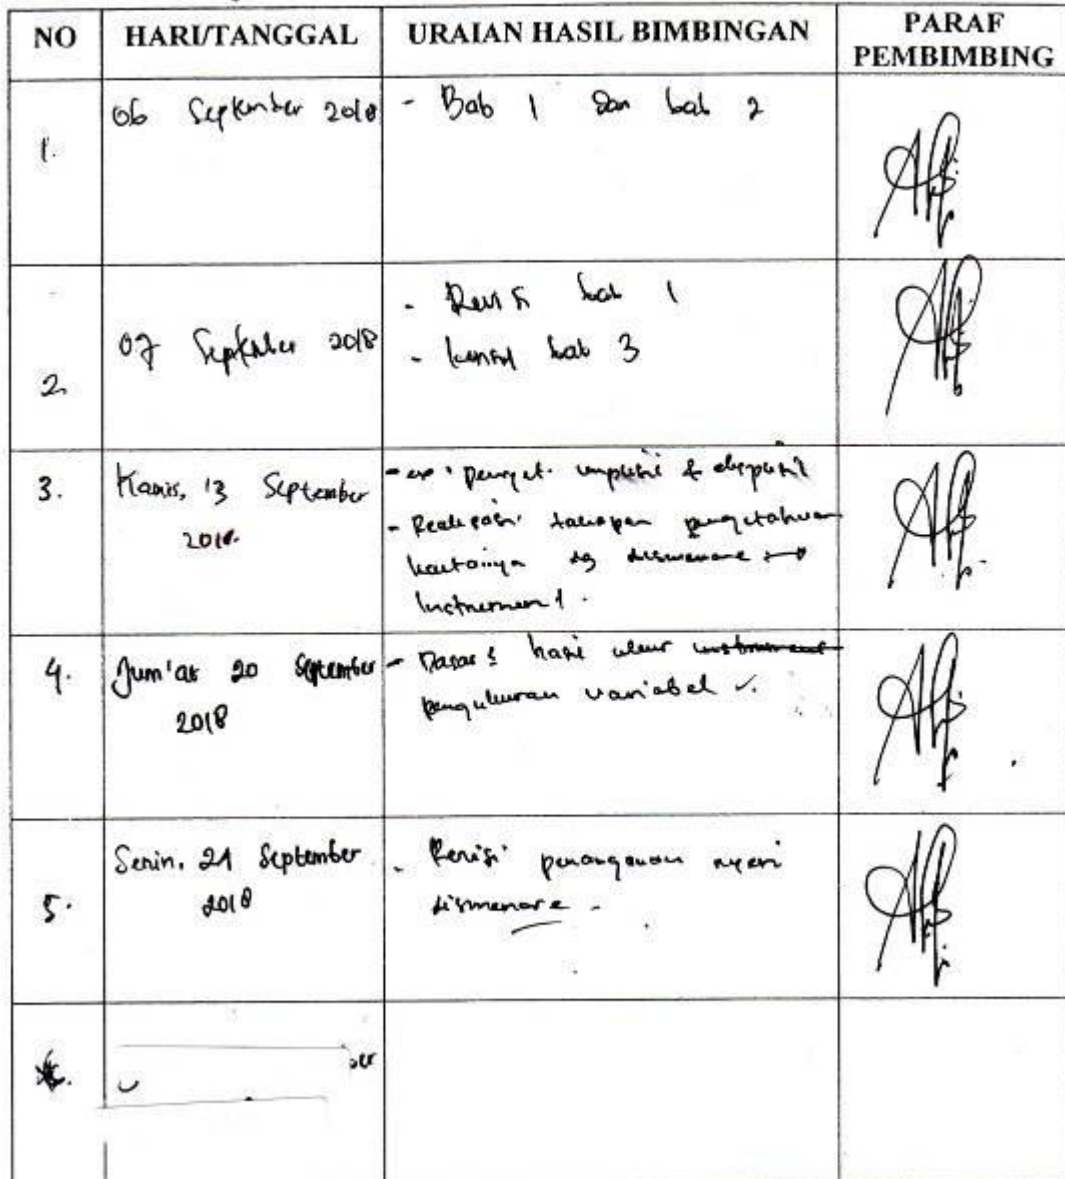 NO HARI/TANGGAL URAIAN HASIL BIMBINGAN PARAF PEMBIMBING
1. 06 September 2018 - Bab 1 dan bab 2
2. 07 September 2018 - Revisi bab 1
- konsul bab 3
3. Kamis, 13 September
2018.
- penget. implisit & eksplisit
- Realisasi tahapan pengetahuan
kaitannya dg dismenore
Instrumen
4. Jum'at 20 September
2018
- Dasar hasil ukur instrument
pengukuran variabel
5. Senin, 24 September
2018
- Revisi penanganan nyeri
dismenore -